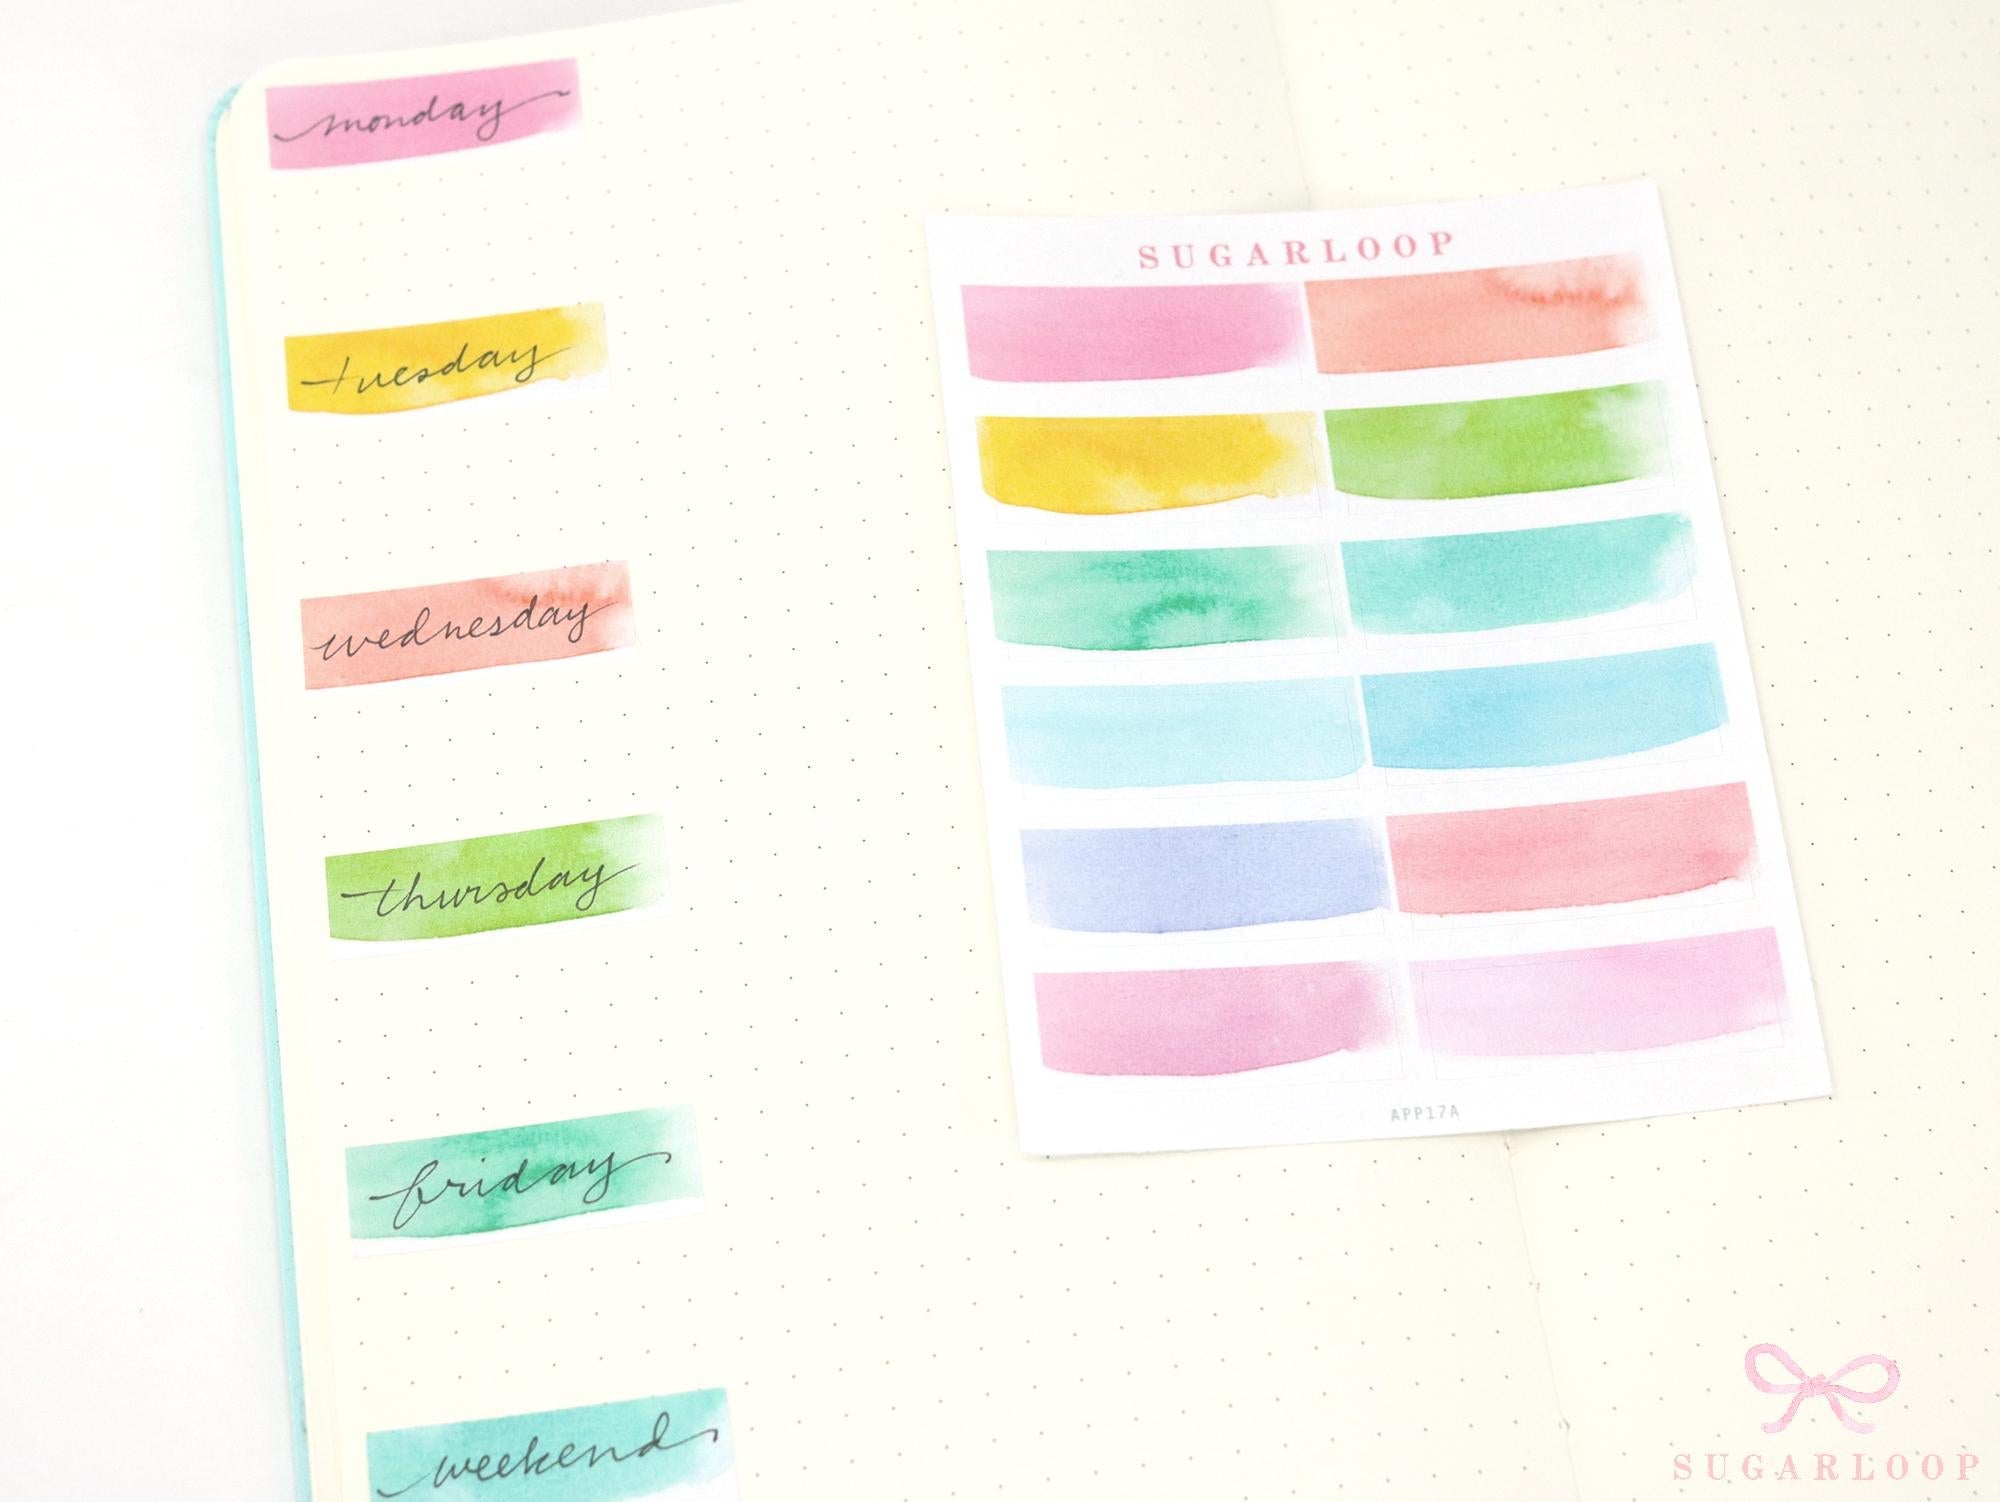 monday
tuesday
wednesday
thursday
friday
weekend
SUGARLOOP
APP17A
SUGARLOOP